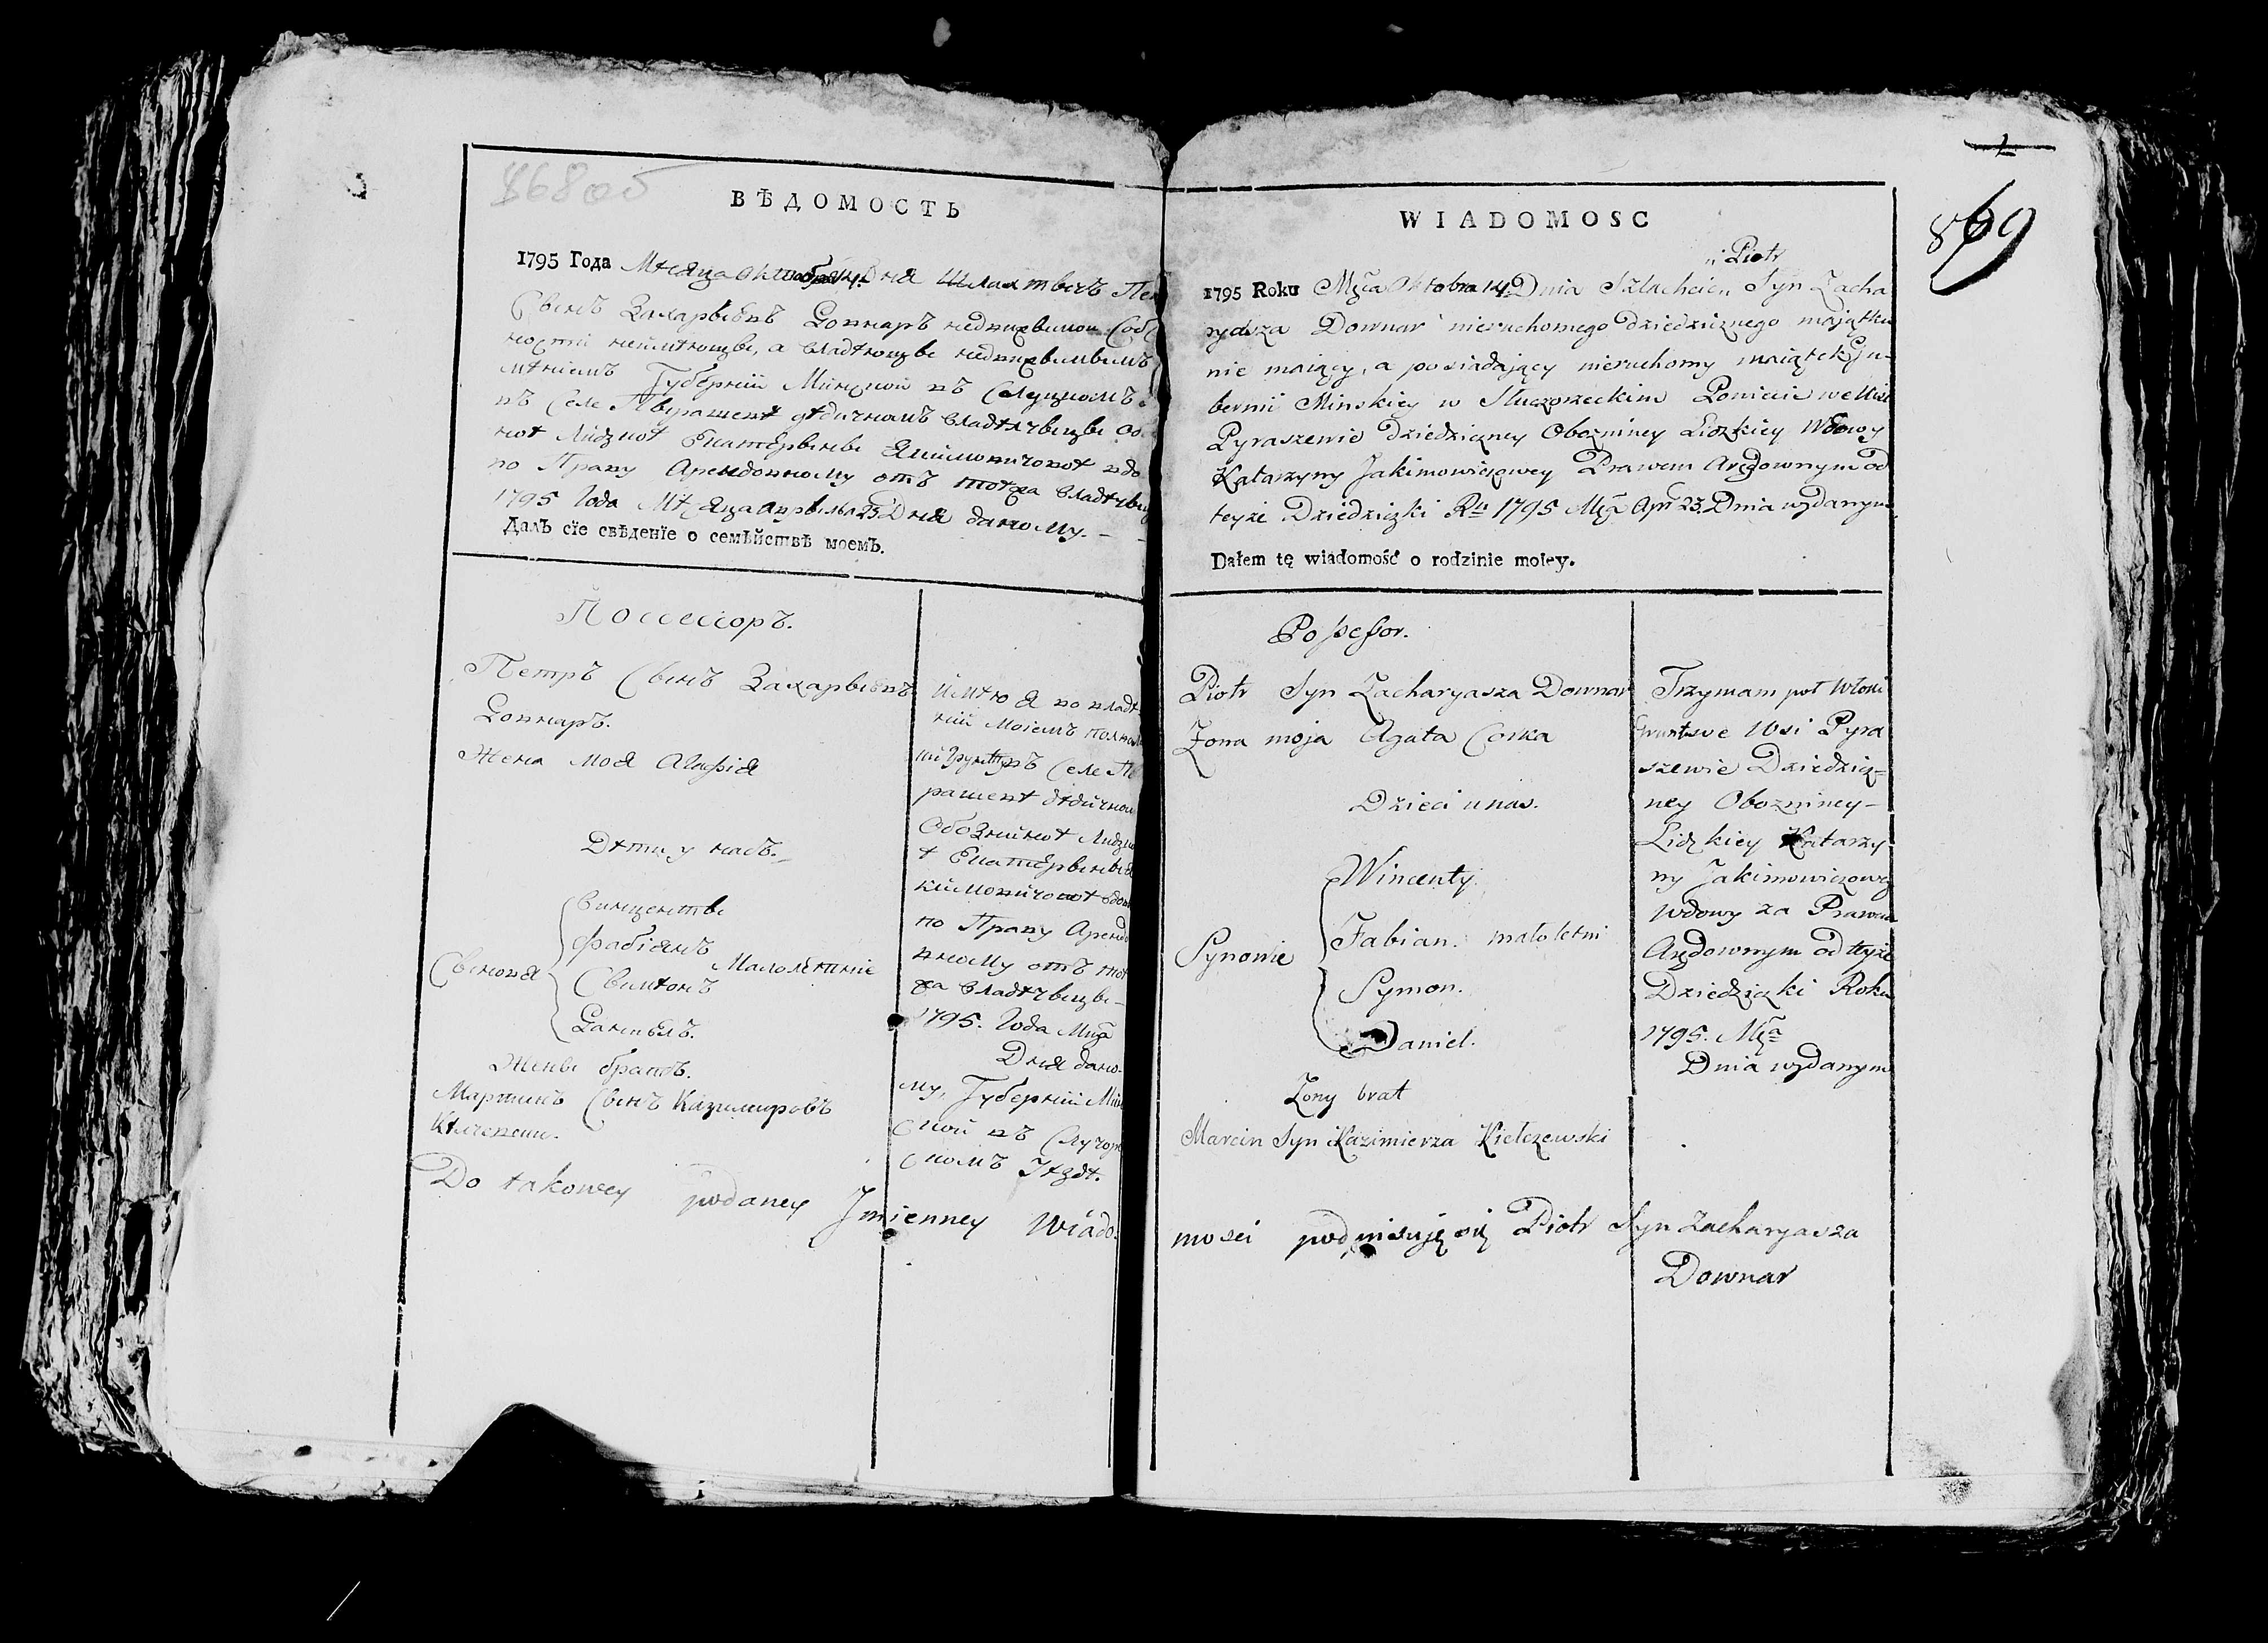 868 об
ВѢДОМОСТЬ
1795 Года Мѣсяца Октобра 14. Дня Шляхтичъ Пе
Сынъ Захарыевъ Довнаръ недвижимои Соб
ности неимѣющы, а владѣющы недвижимымъ
мѣниемъ Губернии Минскои въ Слуцкомъ
въ Селе Пырашевѣ дѣдичномъ владѣлчицы Об
ноѣ Лидзкоѣ Екатерыны Якимовичовоѣ вдо
по Праву Арендовному отъ тоѣжа владѣлчи
1795 Года Мѣсяца Апрыля 23 Дня даному. –
Далъ сїе свѣденїе о семѣйствѣ моемъ.
Поссесіоръ.
Петръ Сынъ Захарыевъ
Довнаръ.
Жена моя Агафія
Дѣти у насъ.
Винценты
Фабіянъ
Сынови Малолѣтніе
Сымонъ
Даніелъ.
Жены братъ.
Мартинъ Сынъ Казимировъ
Кѣлчевски.
имѣю я во владѣ
нии моіемъ полвло
ии Грунту въ Селе Пы
рашевѣ дѣдичном
Обозниноѣ Лидзко
ѣ Екатерыны Я
кимовичовоѣ вдовы
по Праву Арендо
вному отъ тоѣ
жа владѣлчицы –
1795. Года Мца
Дня дано–
му, Губернии Мин
скои въ Слуцо
скомъ Уѣздѣ.
Do takowey podaney Jmienney Wiado:
1
869
WIADOMOSC
„ Piotr
1795 Roku Mśca Oktobra 14. Dnia Szlachcic „ Syn Zacha
ryasza Downar nieruchomego dziedzicznego majątku
nie maiący, a posiadający nieruchomy maiątek Gu-
bernii Minskiey w Słuczoreckim Powiecie we Wsi
Pyraszewie Dziedziczney Obozniney Lidzkiey Wdowy
Katarzyny Jakimowiczowey Prawem Arędownym od
teyże Dziedziczki Ru 1795 Mca Apr 23. Dnia wydanym
Dałem tę wiadomość o rodzinie moiey.
Possessor.
Piotr Syn Zacharyasza Downar
Żona moja Agata Corka
Dzieci u nas.
Wincenty.
Fabian. małoletni
Synowie
Symon.
Daniel.
Żony brat
Marcin Syn Kazimierza Kiełczewski
Trzymam poł Włoki
Gruntu we Wsi Pyra
szewie Dziedzicz-
ney Obozniney –
Lidzkiey Katarzy
ny Jakimowiczowey
Wdowy za Prawem
Arędownym od teyże
Dziedziczki Roku
1795. Mca
Dnia wydanym
mosci podpisuję się Piotr Syn Zacharyasza
Downar